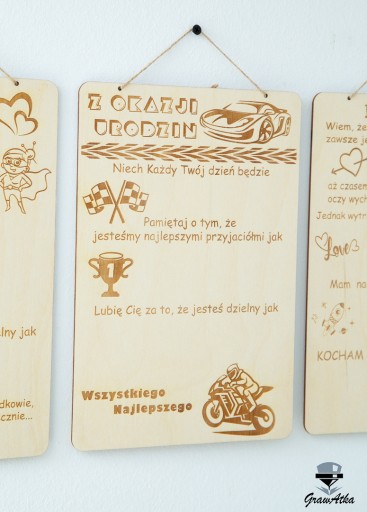 Z OKAZJI
URODZIN
Niech Każdy Twój dzień będzie
Pamiętaj o tym, że
jesteśmy najlepszymi przyjaciółmi jak
1
Lubię Cię za to, że jesteś dzielny jak
Wszystkiego
Najlepszego
lny jak
dkowie,
cznie...
Wiem, że
zawsze je
aż czasem
oczy wych
Jednak wytr
Love
Mam na
KOCHAM
GrawAtka